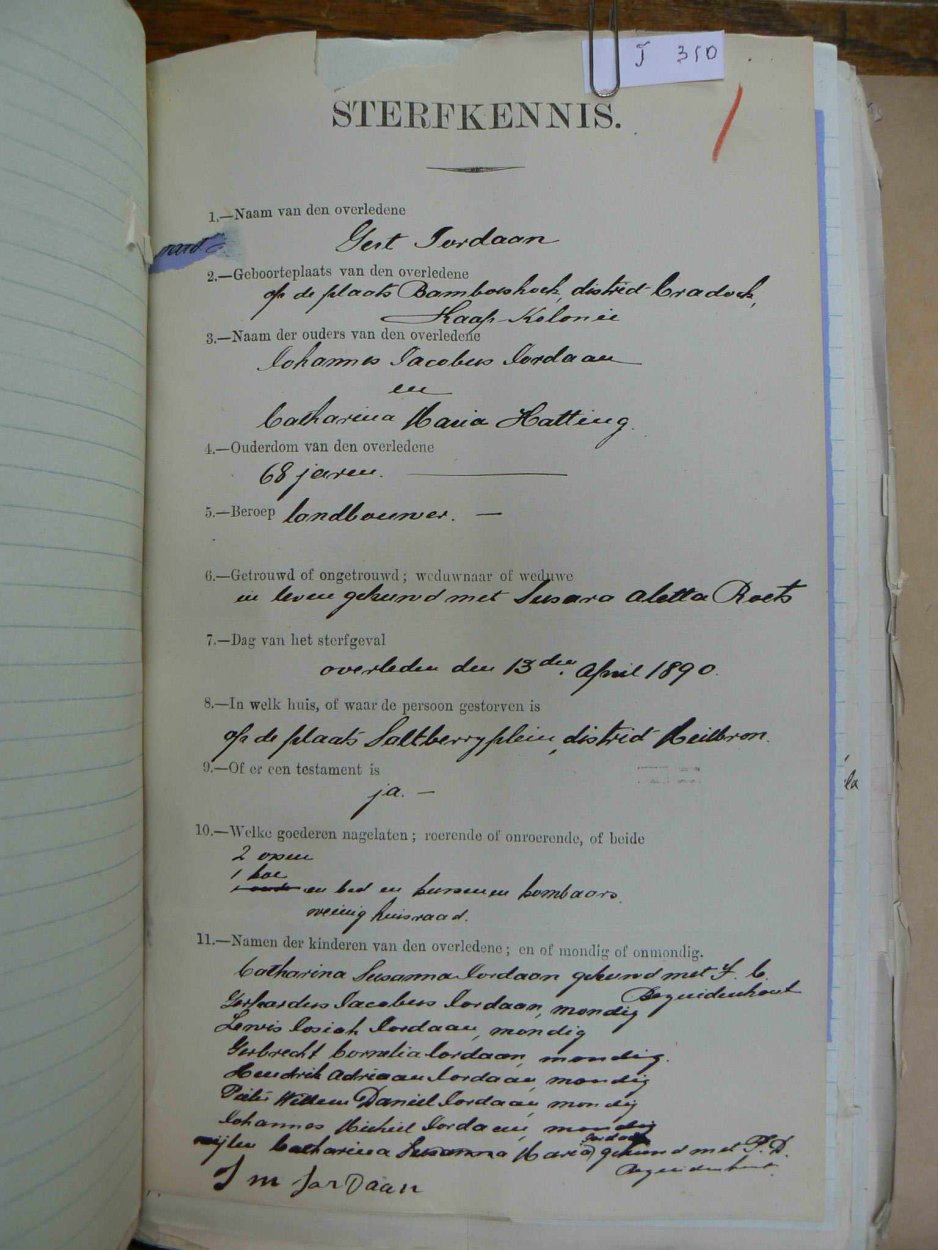 J 310
STERFKENNIS.
1.—Naam van den overledene
Gert Jordaan
2.—Geboorteplaats van den overledene
op de plaats Bamboeshoek, district Cradock,
Kaap-Kolonie
3.—Naam der ouders van den overledene
Johannes Jacobus Jordaan
en
Catharina Maria Hatting.
4.—Ouderdom van den overledene
68 jaren.
5.—Beroep landbouwer. —
6.—Getrouwd of ongetrouwd; weduwnaar of weduwe
in leven gehuwd met Susara Aletta Roets
7.—Dag van het sterfgeval
overleden den 13den April 1890.
8.—In welk huis, of waar de persoon gestorven is
op de plaats Saltberryplein, district Heilbron.
9.—Of er een testament is
ja. —
10.—Welke goederen nagelaten; roerende of onroerende, of beide
2 ossen
1 koe
en bed en kussen en kombaars
weinig huisraad.
11.—Namen der kinderen van den overledene; en of mondig of onmondig.
Catharina Susanna Jordaan gehuwd met J. C.
Bezuidenhout
Gerhardus Jacobus Jordaan, mondig
Lewis Josiah Jordaan, mondig
Gesbrecht Cornelia Jordaan, mondig.
Hendrik Adriaan Jordaan, mondig
Pieter Willem Daniel Jordaan, mondig
Johannes Michiel Jordaan, mondig
Jordaan
wijlen Catharina Susanna Maria gehuwd met P. D.
Bezuidenhout.
J m JorDaan